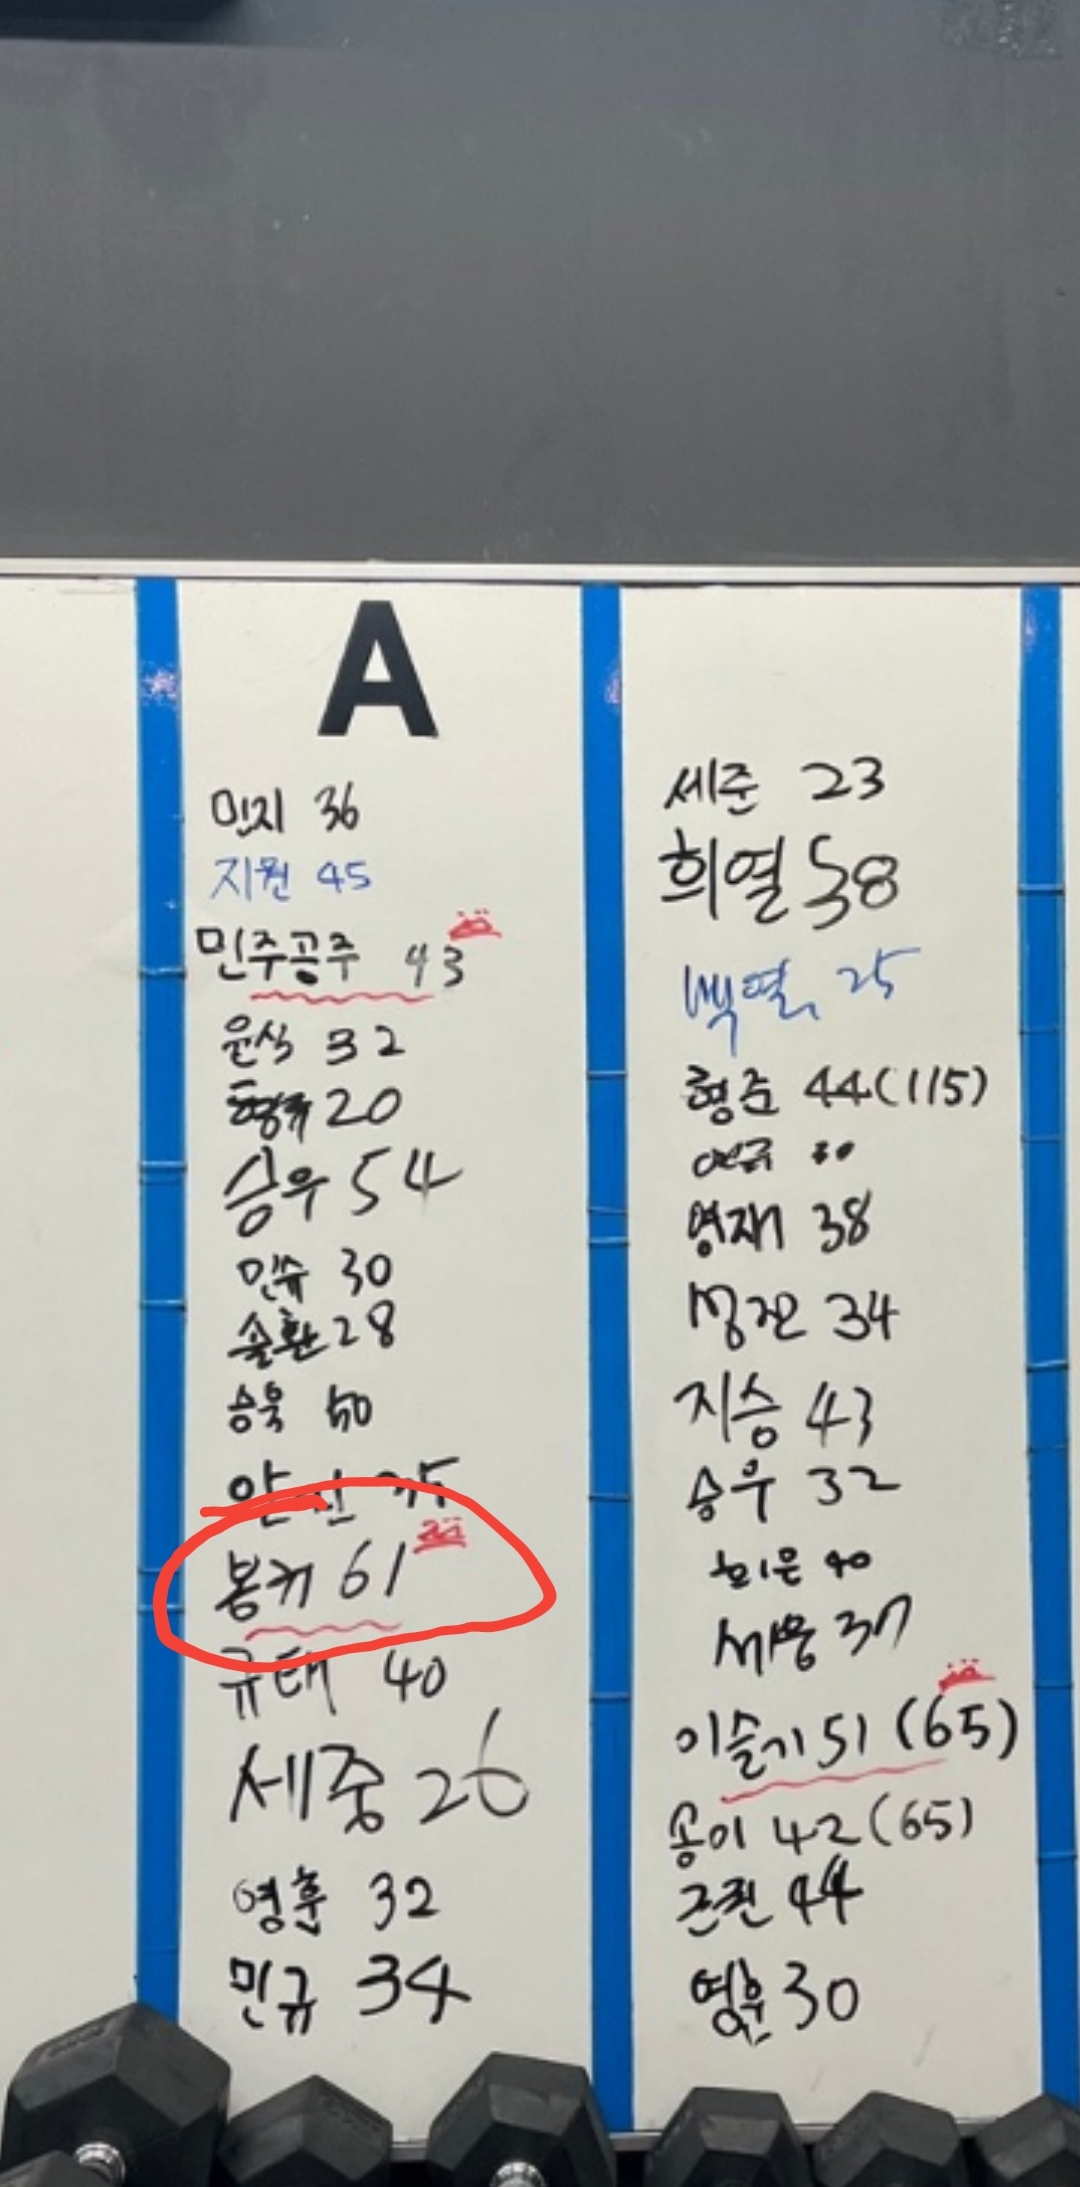 A
민지 36
지원 45
민주공주 43
윤식 32
20
승우 54
민규 30
솔환 28
승욱 50
봉커 61
규태 40
세중 26
영훈 32
민규 34
세준 23
희열 58
백열 25
형준 44(115)
30
영재 38
성진 34
지승 43
승우 32
희은 40
세용 37
이슬기 51 (65)
송이 42 (65)
근권 44
영훈 30